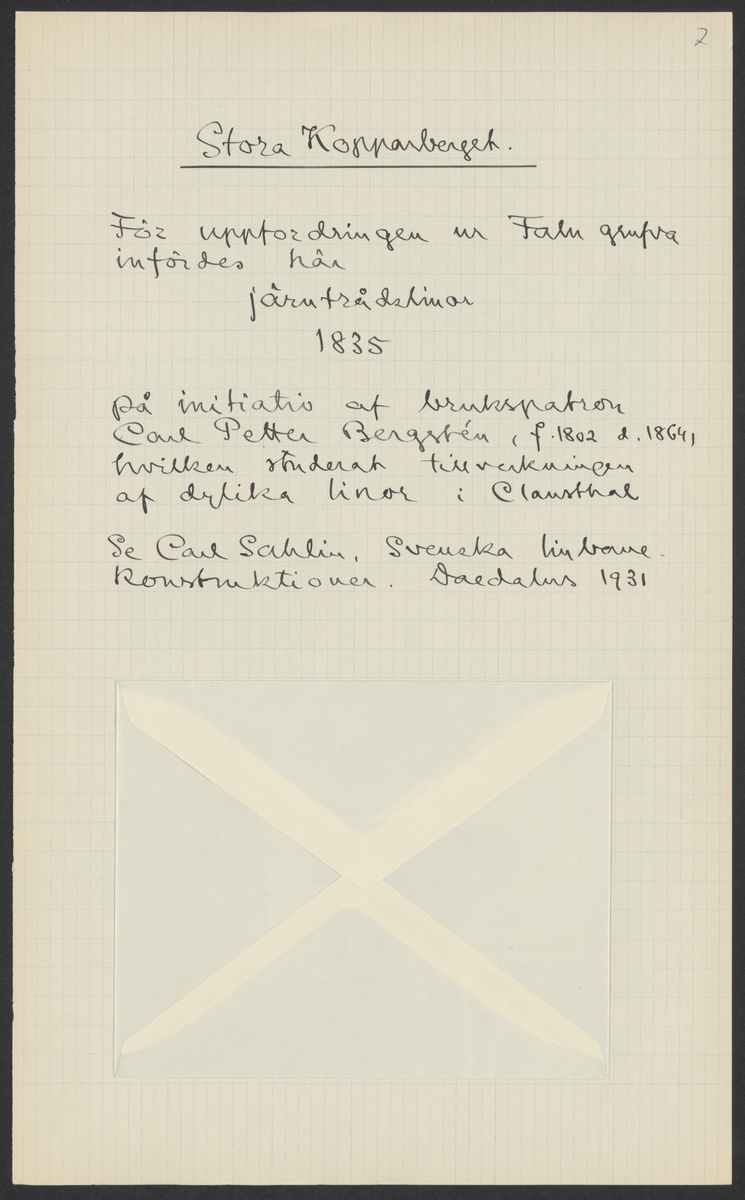 2
Stora Kopparberget.
För uppfordringen ur Falu grufva
infördes här
järntrådslinor
1835
på initiativ af brukspatron
Carl Petter Bergstén, (f. 1802 d. 1864)
hvilken studerat tillverkningen
af dylika linor i Clausthal
Se Carl Sahlin, Svenska linbane-
konstruktioner. Daedalus 1931